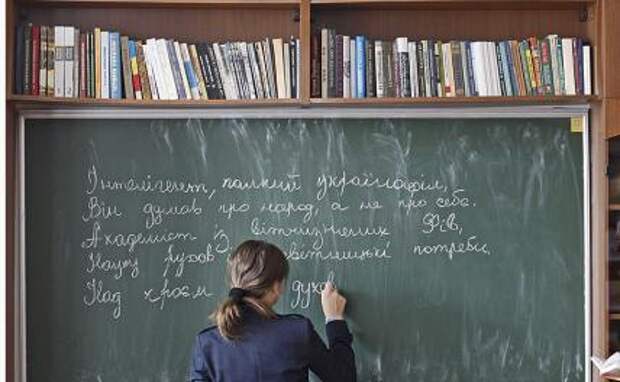 Інтелігент, палкий українофіл,
Він думав про народ, а не про себе.
Академіст із вітчизнених Фів,
Науку рухов світницькі потреби,
Над краєм духов